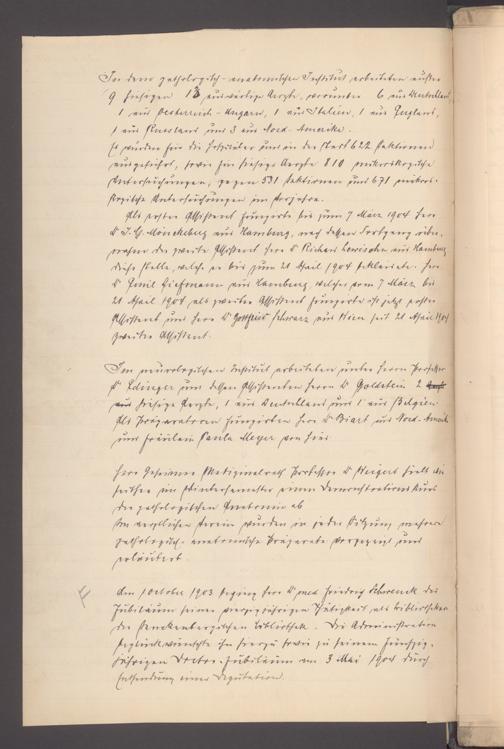 In dem pathologisch-anatomischen Institut arbeiteten außer
9 hiesigen 13 auswärtige Aerzte, worunter 6 aus Deutschland,
1 aus Oesterreich-Ungarn, 1 aus Italien, 1 aus England,
1 aus Russland und 3 aus Nord-Amerika.
Es wurden für die Hospitäler und in der Stadt 622 Sektionen
ausgeführt, sowie für hiesige Aerzte 810 mikroskopische
Untersuchungen, gegen 531 Sektionen und 671 mikros-
kopische Untersuchungen im Vorjahre.
Als erster Assistent fungierte bis zum 7 März 1904 Herr
Dr J. G. Mönckeberg aus Hamburg, nach dessen Fortgang über-
nahm der zweite Assistent Herr Dr Richard Lewisohn aus Hamburg
diese Stelle, welche er bis zum 21 April 1904 bekleidete. Herr
Dr Emil Giesmann aus Hamburg, welcher vom 7 März bis
21 April 1904 als zweiter Assistent fungierte ist jetzt erster
Assistent und Herr Dr Gottfried Schwarz aus Wien seit 21 April 1904
zweiter Assistent.
Im neurologischen Institut arbeiteten unter Herrn Professor
Dr Edinger und dessen Assistenten Herrn Dr Goldstein 2
hiesige Aerzte, 1 aus Deutschland und 1 aus Belgien.
Als Präparatoren fungierten Herr Dr Biart aus Nord-Amerika
und Fräulein Paula Meyer von hier.
Herr Geheimer Medizinalrath Professor Dr Weigert hielt wie
seither im Wintersemester einen Demonstrationskurs
der pathologischen Anatomie ab
Im ärztlichen Verein wurden in jeder Sitzung mehrere
pathologisch-anatomische Präparate vorgezeigt und
erläutert.
F
Am 1 October 1903 beging Herr Dr med. Friedrich Schwenck das
Jubiläum seiner vierzigjährigen Thätigkeit als Bibliothekar
der Senckenbergischen Bibliothek. Die Administration
beglückwünschte ihn hierzu sowie zu seinem fünfzig-
jährigen Doctor-Jubiläum am 3 Mai 1904 durch
Entsendung einer Deputation.